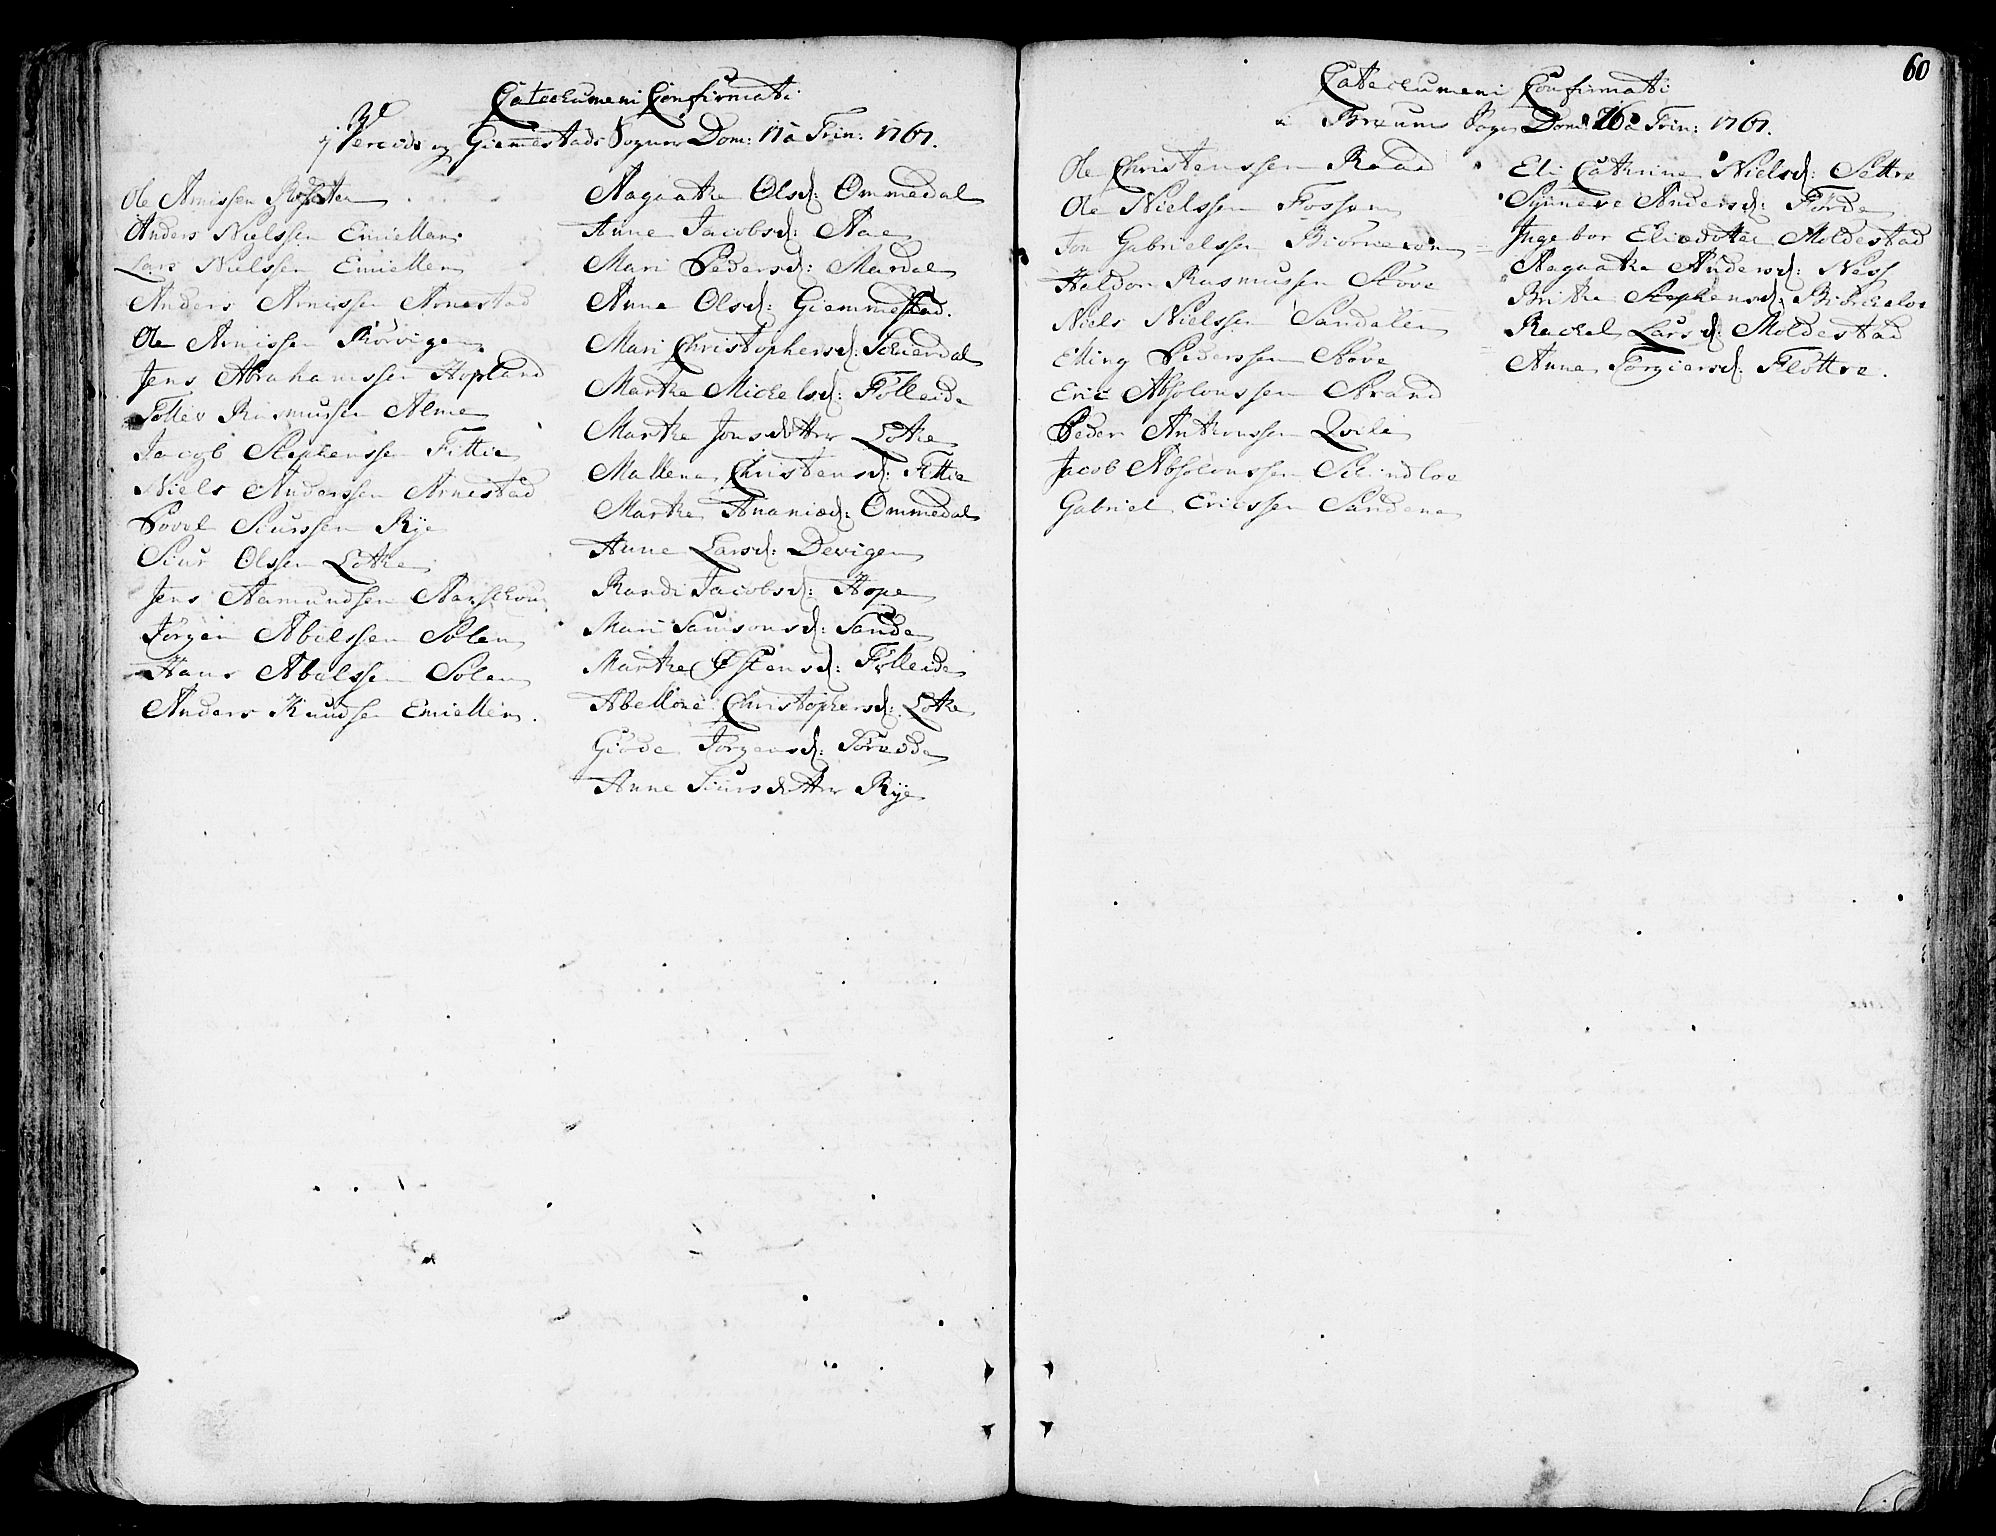 Catechumeni Confirmati
i Vereids og Giemestads Sogner Dom: 17 à Trin: 1767.
Ole Arnissen
Anders Nielssen Emiellem
Lars Nielssen Emiellem
Anders Arnessen Arnestad
Ole Arnissen Rörvigen
Jens Abrahamssen Hopland
Tollev Rasmussen Alme
Jacob Stephenssen Fittie
Niels Anderssen Arnestad
Povel Siurssen Rye
Siur Olssen Lothe
Jens Aamundsen
Jörgen Abelssen Solem
Hans Abelssen Solem
Anders Knudsen Emiellem.
Aagaathe Olsd: Ommedal
Anne Jacobsd: Aae
Mari Pedersd: Mardal
Anne Olsd: Giemmestad.
Mari Christophersd: Schierdal
Marthe Michelsd: Folleide
Marthe Jonsdotter Lothe
Mallena Christensd: Fittie
Marthe Ananiæd: Ommedal
Anne Larsd: Devigen
Randi Jacobsd: Hope
Mari Samsonsd: Sande
Marthe Östensd: Folleide
Abellone Christophersd: Lothe
Giöde Jörgensd:
Anne Siursdotter Rye
60
Catechumeni Confirmati
i Breums Sogn Dom: 16 à Trin: 1767.
Ole Christenssen Raad
Ole Nielssen Fossem
Jon Gabrielssen
Haldor Rasmussen Stöve
Niels Nielssen Sandalen
Elling Pederssen Stöve
Eric Absolonssen Strand
Peder Anthonssen Qvile
Jacob Absolonssen
Gabriel Ericssen Sandene
Eli Cathrine Nielsd: Settre
Synneve Andersd: Förde
Ingebor Eliædotter Moldestad
Aagaathe Andersd: Ness
Brithe Stephensd:
Rachel Larsd: Moldestad
Anne Torgiersd: Flöttre.